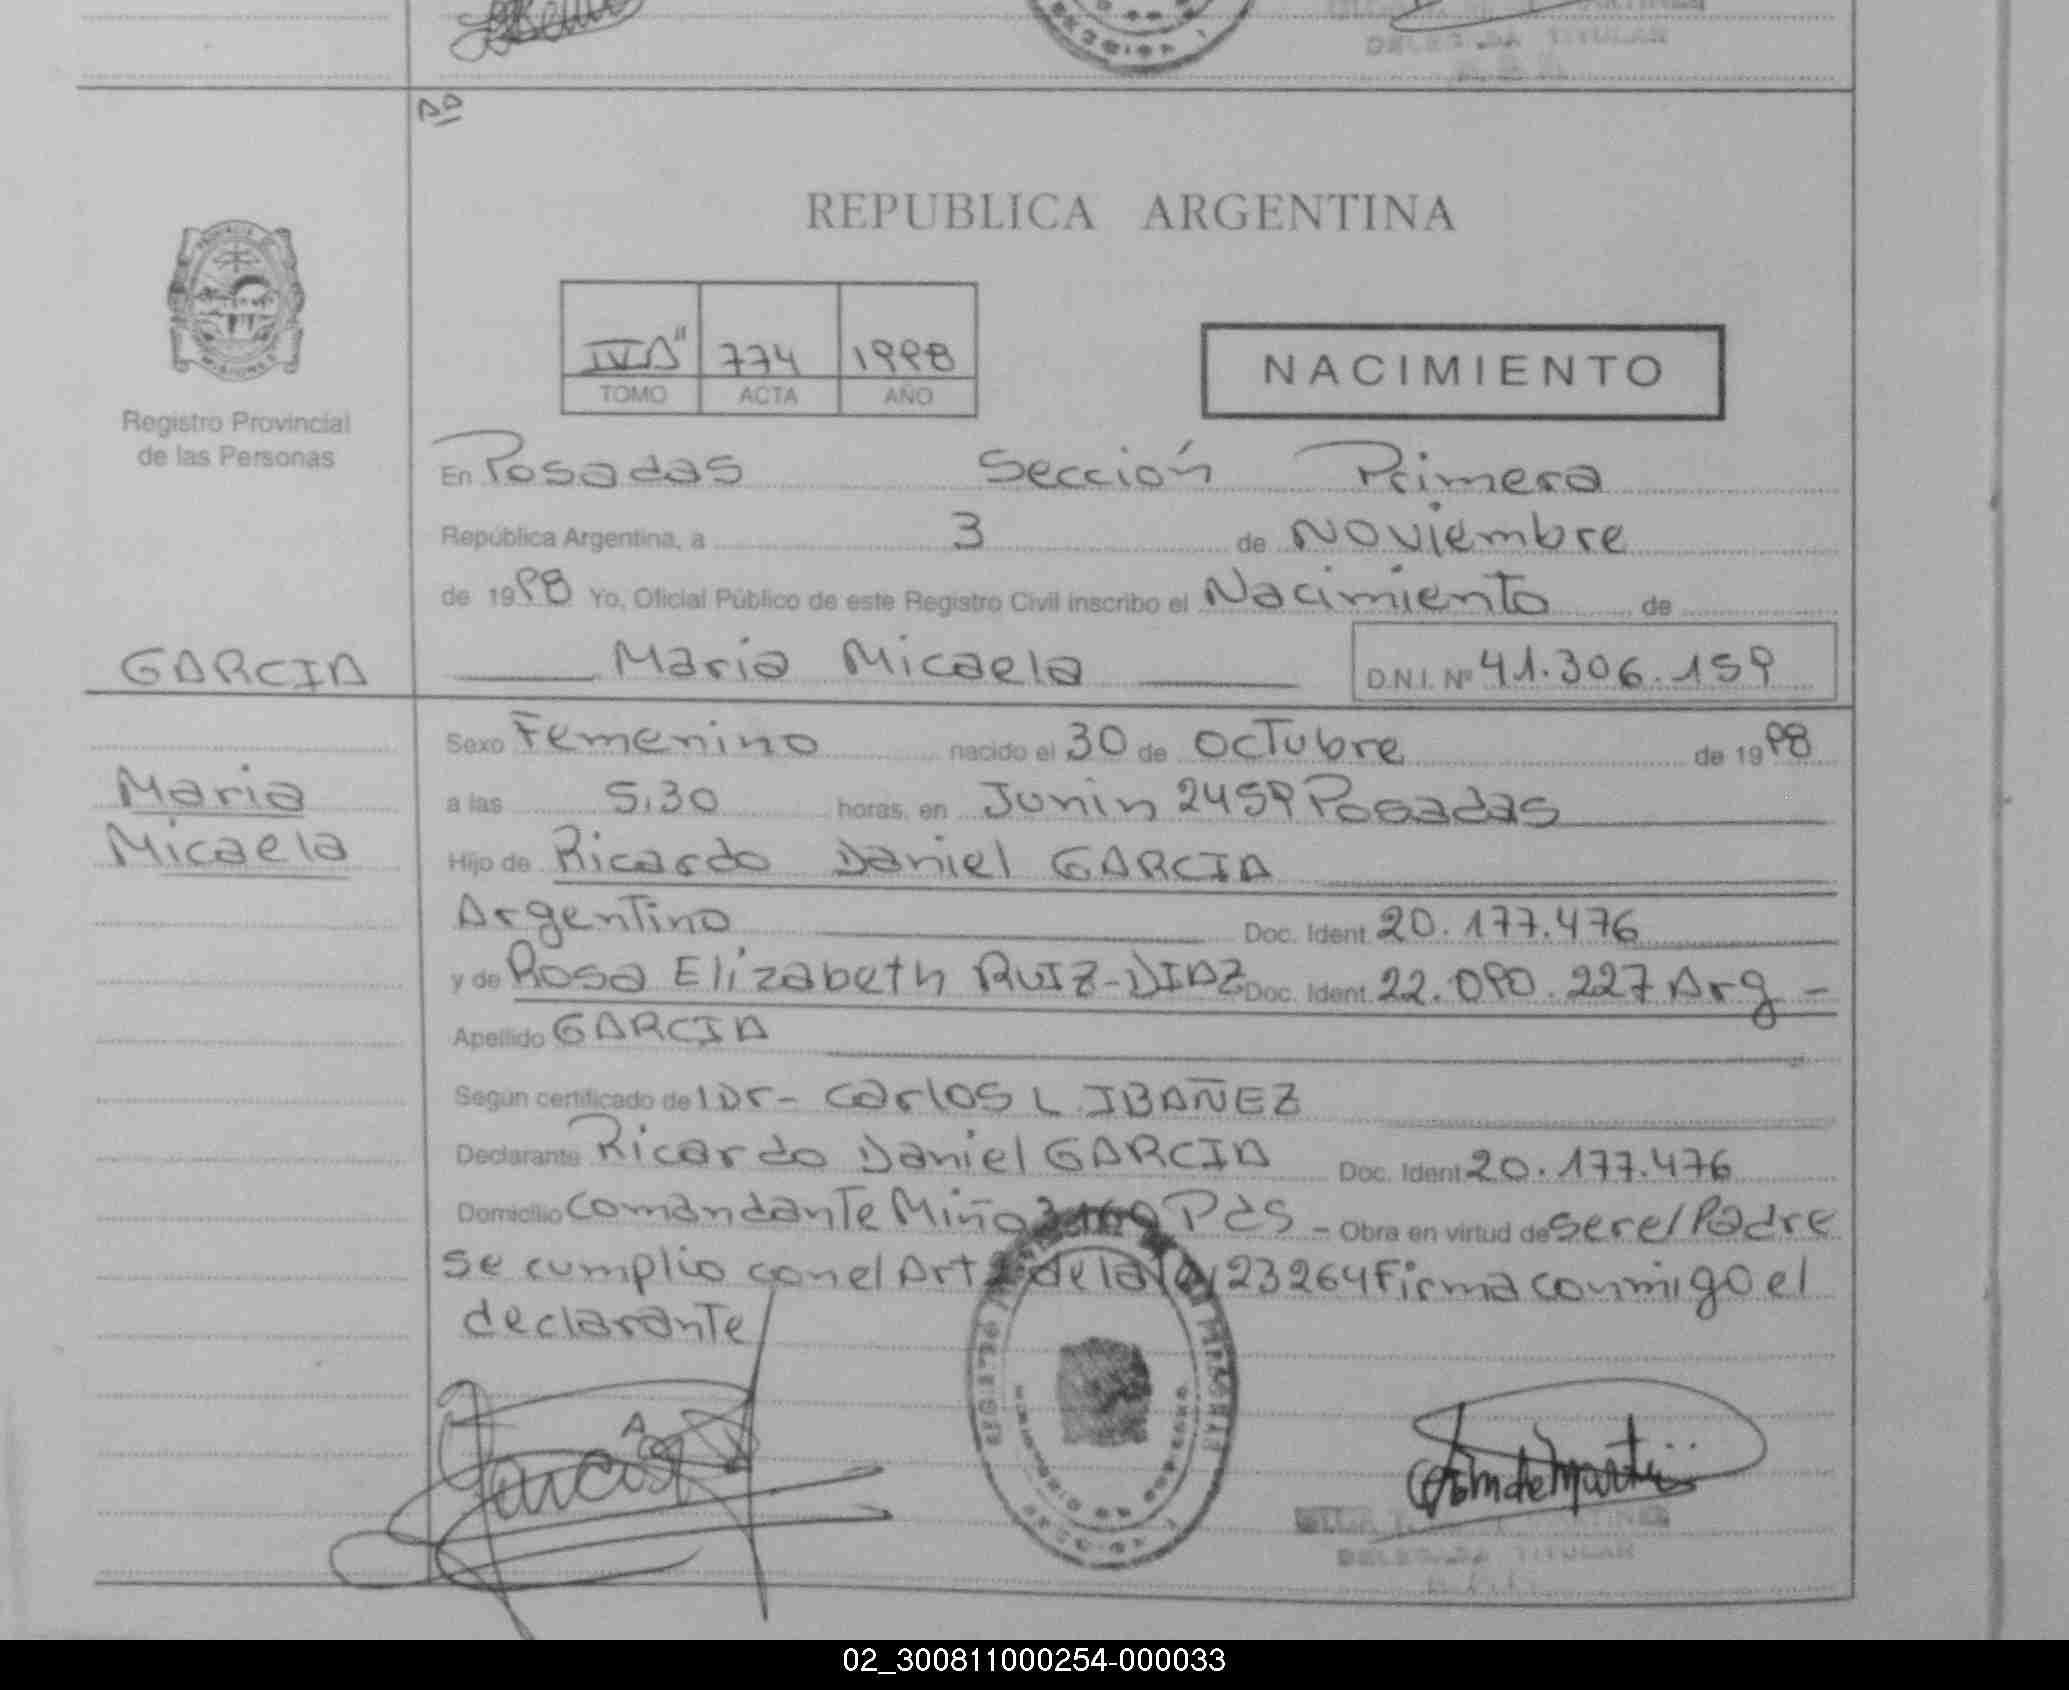 DELEGADA TITULAR
REPUBLICA ARGENTINA
IV A" 774 1998
TOMO ACTA AÑO
NACIMIENTO
Registro Provincial
de las Personas
En Posadas Sección Primera
República Argentina, a 3 de Noviembre
de 1998 Yo, Oficial Público de este Registro Civil inscribo el Nacimiento de
GARCIA Maria Micaela D.N.I. Nº 41.306.159
Sexo Femenino nacido el 30 de octubre de 1998
Maria
a las 5,30 horas, en Junin 2459 Posadas
Micaela
Hijo de Ricardo Daniel GARCIA
Argentino Doc. Ident. 20.177.476
y de Rosa Elizabeth RUIZ-DIAZ Doc. Ident. 22.090.227 Arg -
Apellido GARCIA
Según certificado de Dr- Carlos L IBAÑEZ
Declarante Ricardo Daniel GARCIA Doc. Ident. 20.177.476
Domicilio Comandante Miño Pds - Obra en virtud de ser el Padre
se cumplio con el Art de la 23264 Firma conmigo el
declarante
DELEGADA TITULAR
02_300811000254-000033